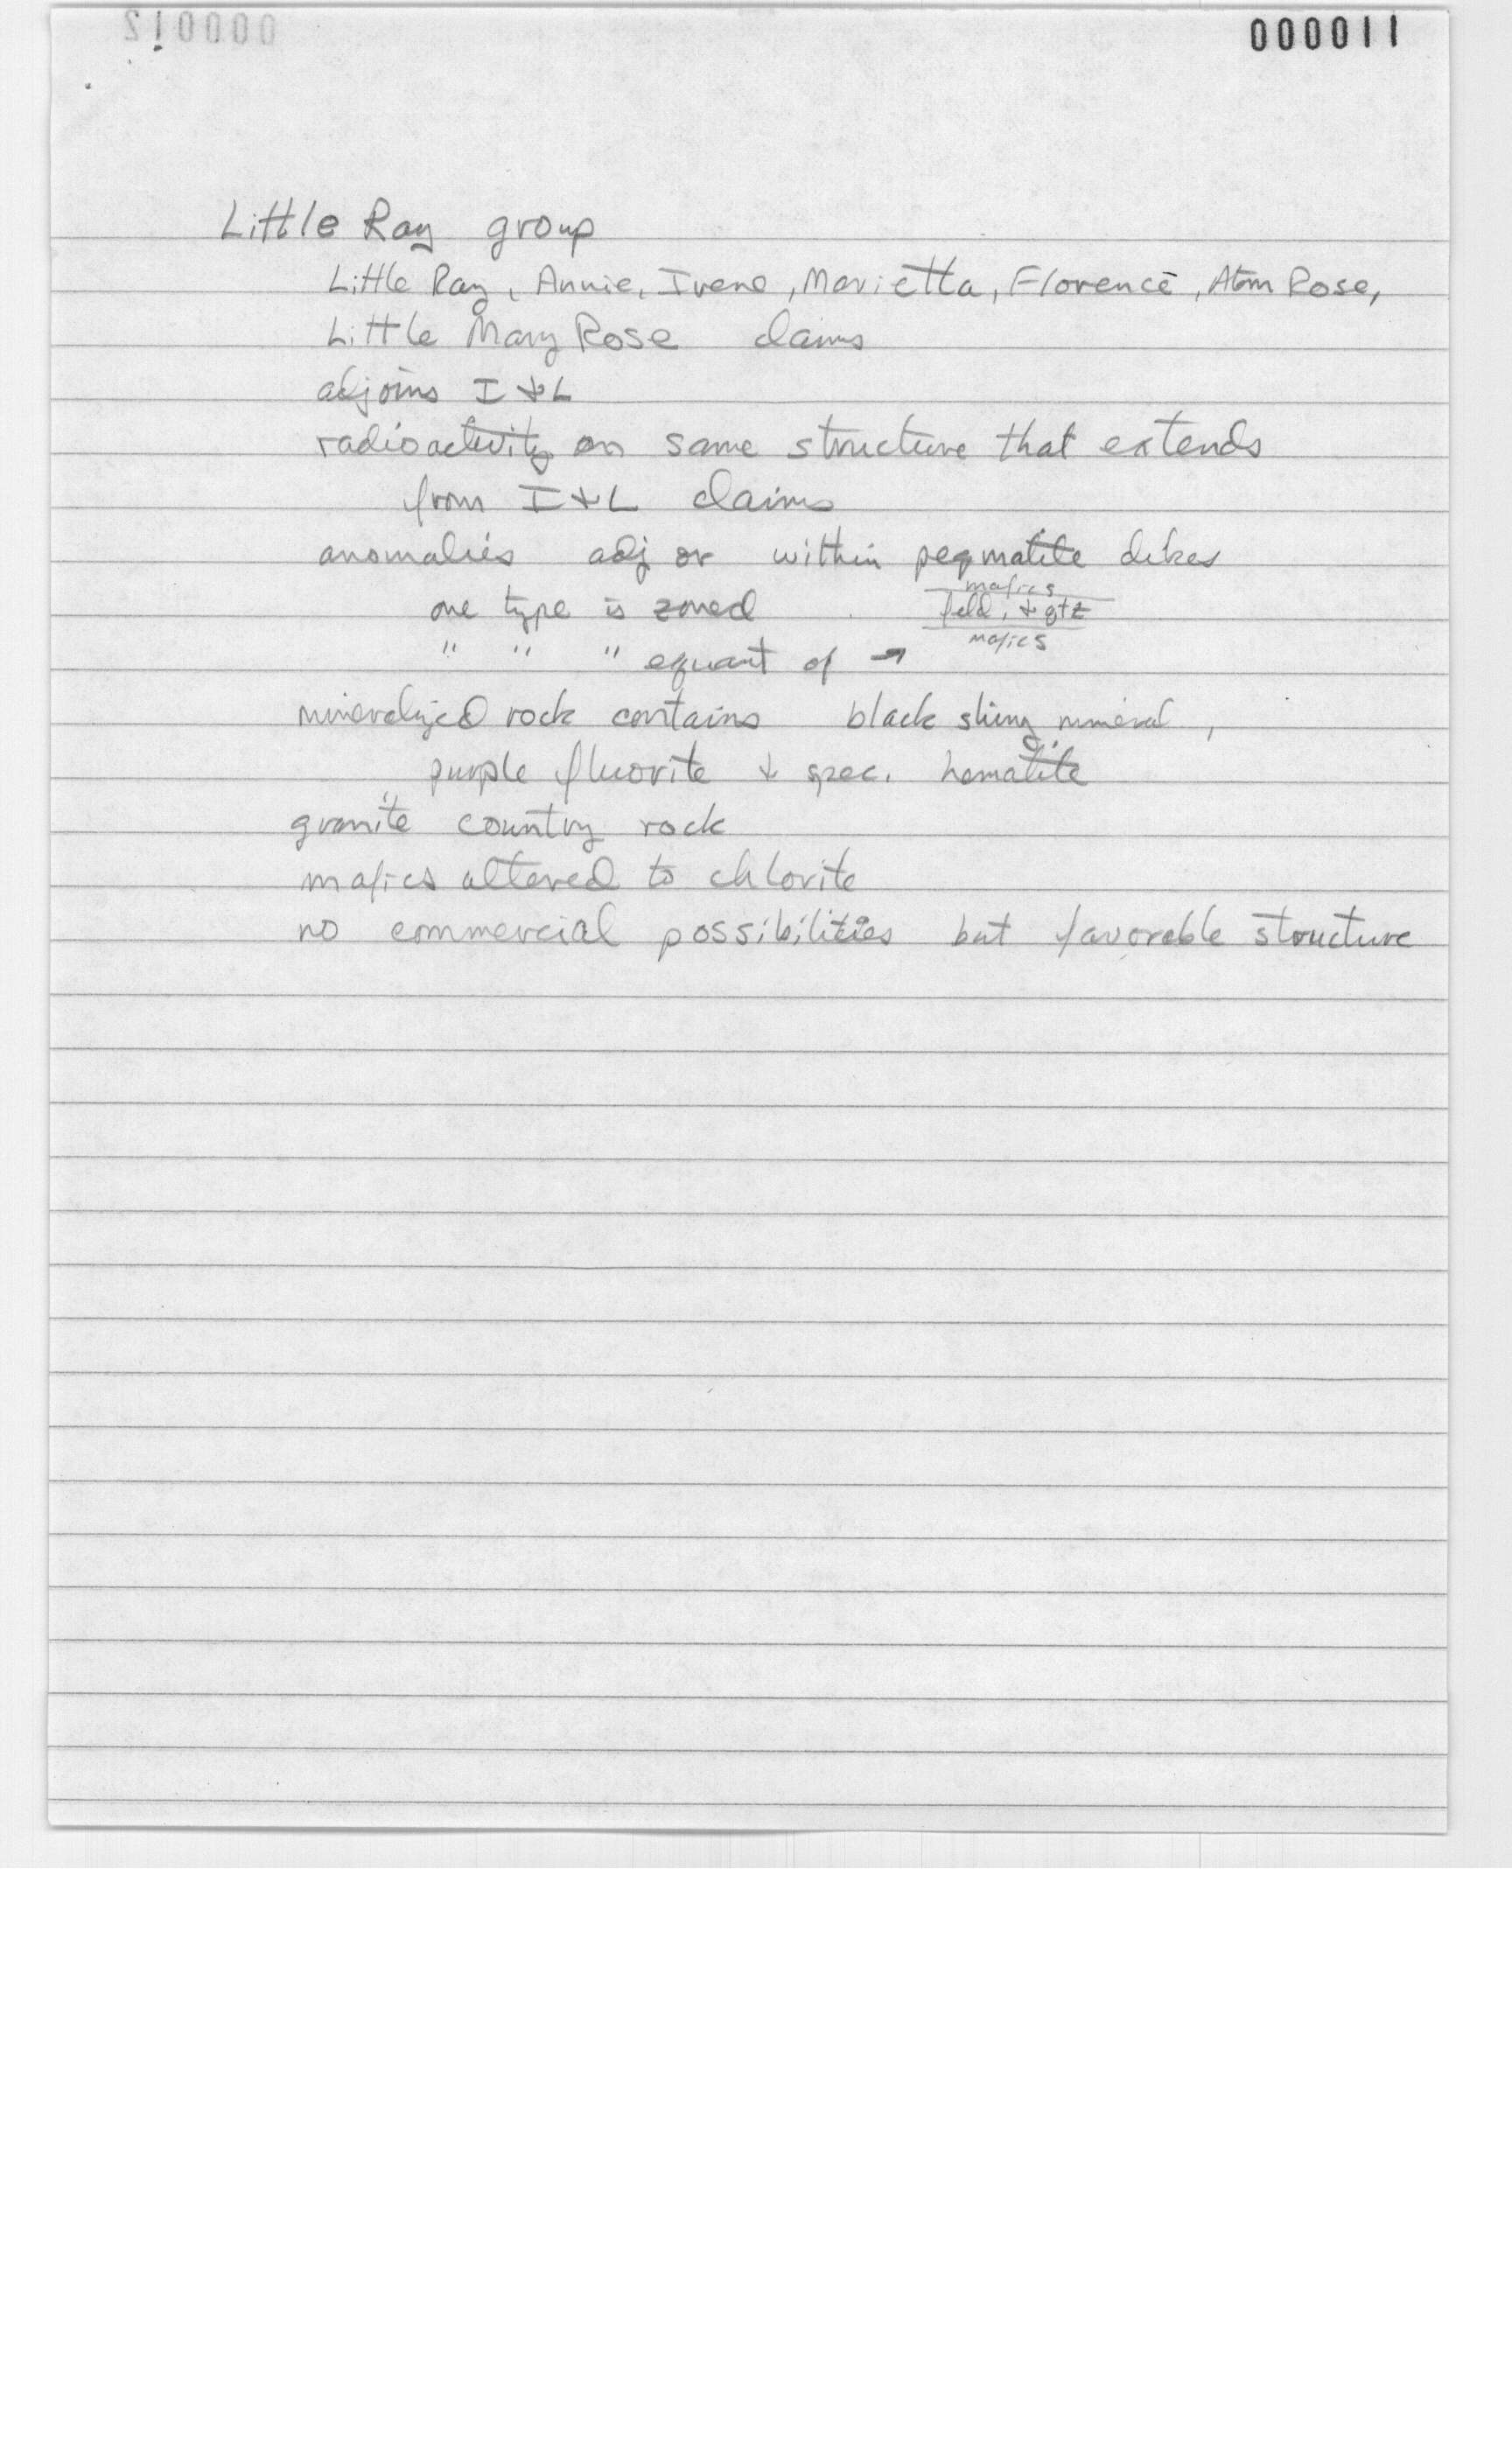 000011
Little Ray group
Little Ray, Annie, Irene, Marietta, Florence, Atom Rose,
Little Mary Rose claims
adjoins I & L
radioactivity on same structure that extends
from I & L claims
anomalies adj or within pegmatite dikes
mafics
one type is zoned feld. & qtz
mafics
" " " equant of →
mineralized rock contains black shiny mineral,
purple fluorite & spec. hematite
granite country rock
mafics altered to chlorite
no commercial possibilities but favorable structure